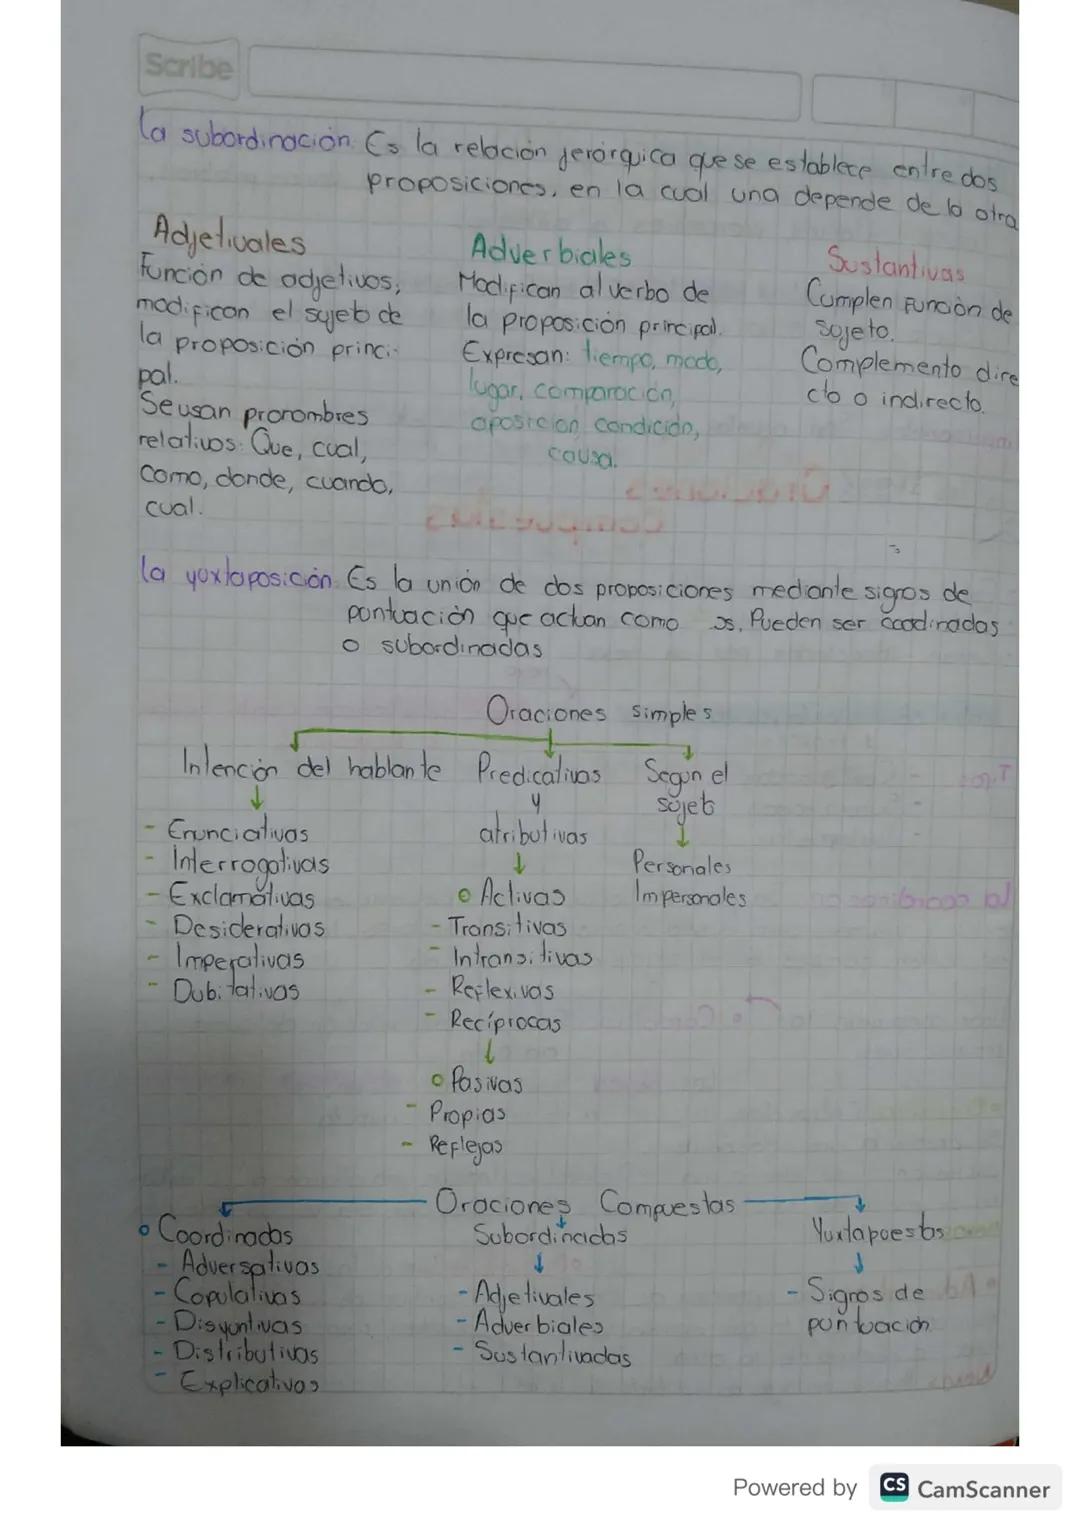 Scribe
La subordinación. Es la relación jerárquica que se establece entre dos
proposiciones, en la cual una depende de la otra
Adjetivales
Función de adjetivos,
modifican el sujeto de
la proposición princi-
pal.
Se usan pronombres
relativos: Que, cual,
como, donde, cuando,
cual.
Adverbiales
Modifican al verbo de
la proposición principal.
Expresan: tiempo, modo,
lugar, comparación,
aposición, condición,
causa.
Sustantivas
Cumplen función de
sujeto.
Complemento dire
cto o indirecto.
La yuxtaposición. Es la unión de dos proposiciones mediante signos de
pontuación que actuan como os. Pueden ser coodinadas
o subordinadas
Oraciones simples
Intención del hablante
- Enunciativas
- Interrogativas
- Exclamativas
- Desiderativas
- Imperativas
- Dubitativas
Predicativas
y
atributivas
Activas
- Transitivas
- Intransitivas
- Reflexivas
- Recíprocas
Pasivas
- Propias
- Reflejas
Segun el
sujeto
Personales
Impersonales
Oraciones Compuestas
Coordinadas
- Adversativas
- Copulativas
- Disyuntivas
- Distributivas
- Explicativas
Subordinadas
- Adjetivales
- Adverbiales
- Sustantivadas
Yuxtapuestas
- Signos de
puntuación
Powered by CS CamScanner